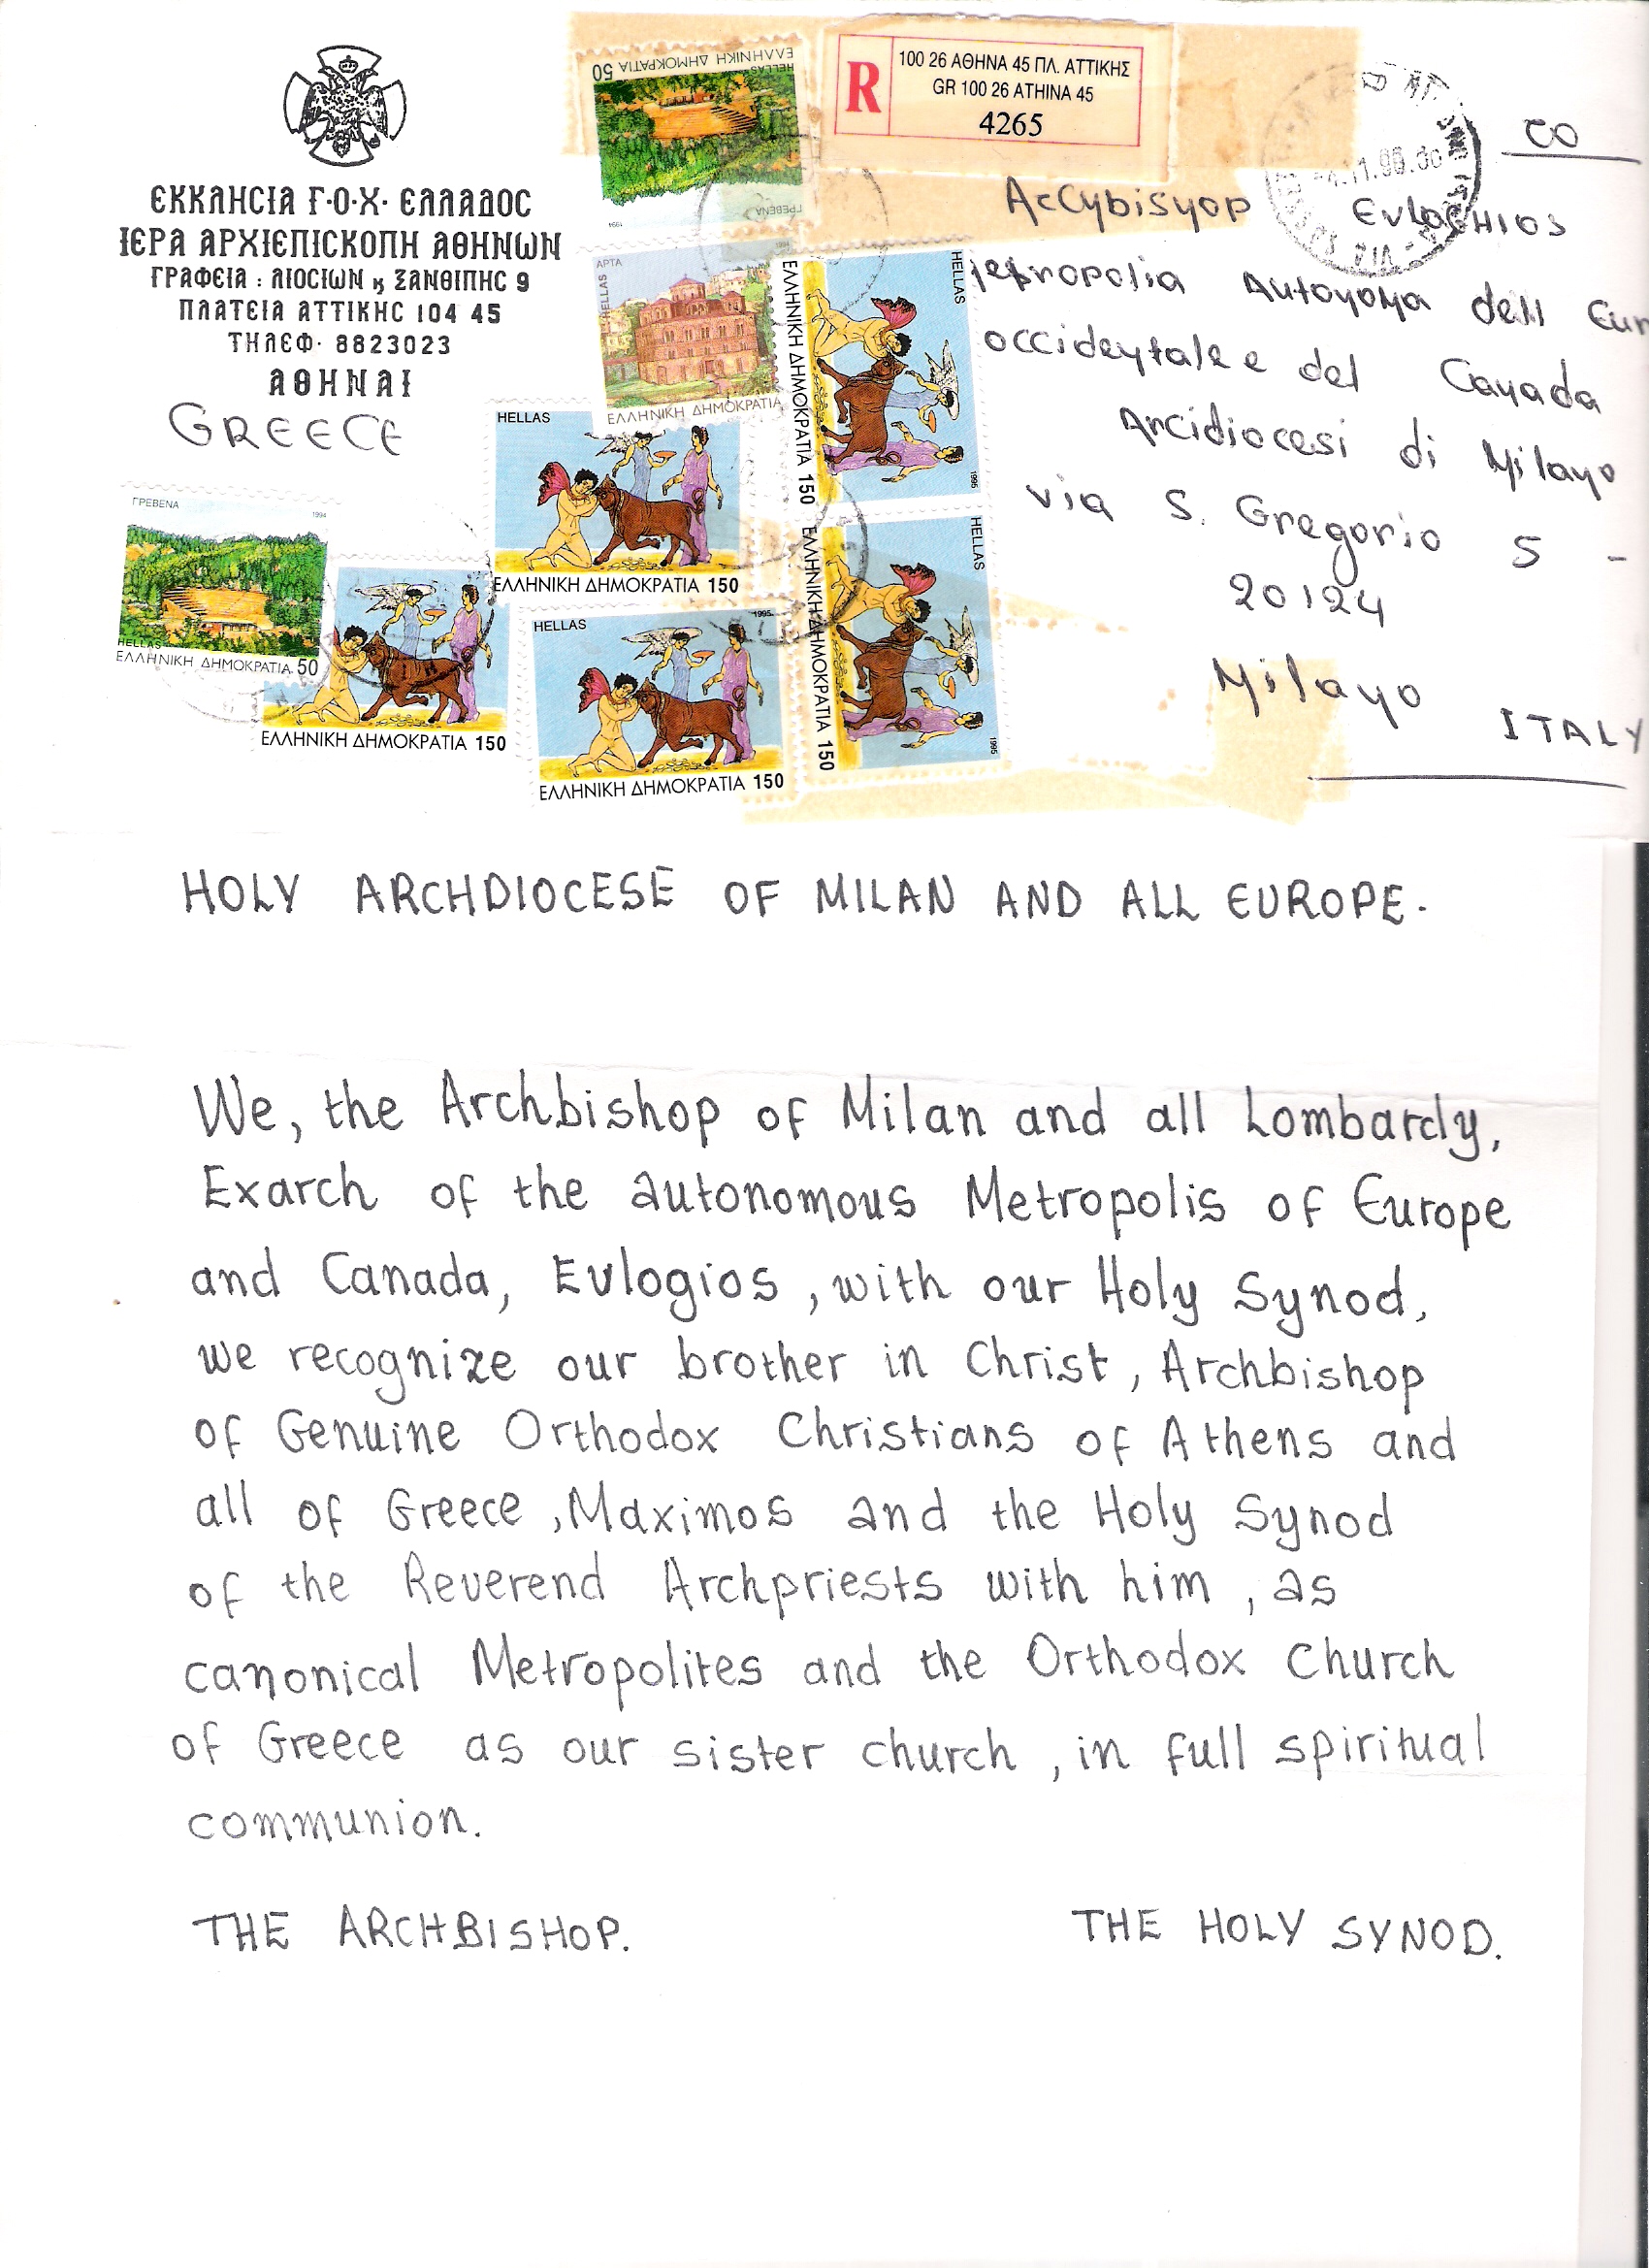 ΕΚΚΛΗCΙΑ Γ·Ο·Χ· ΕΛΛΑΔΟC
ΙΕΡΑ ΑΡΧΙΕΠΙCΚΟΠΗ ΑΘΗΝΩΝ
ΓΡΑΦΕΙΑ : ΛΙΟCΙΩΝ ϗ ΞΑΝΘΙΠΗC 9
ΠΛΑΤΕΙΑ ΑΤΤΙΚΗC 104 45
ΤΗΛΕΦ· 8823023
ΑΘΗΝΑΙ
GREECE
ΕΛΛΗΝΙΚΗ ΔΗΜΟΚΡΑΤΙΑ 50
HELLAS
ΓΡΕΒΕΝΑ
1994
R
100 26 ΑΘΗΝΑ 45 ΠΛ. ΑΤΤΙΚΗΣ
GR 100 26 ATHINA 45
4265
CO
AcCybisyop Evlochios
Autoyoma dell Eur
occideytale e del Cayada
Arcidiocesi di Milayo
via S. Gregorio 5 -
20124
Milayo
ITALY
ΑΡΤΑ
1994
HELLAS
ΕΛΛΗΝΙΚΗ ΔΗΜΟΚΡΑΤΙΑ
HELLAS
1995
ΕΛΛΗΝΙΚΗ ΔΗΜΟΚΡΑΤΙΑ 150
HELLAS
1995
ΕΛΛΗΝΙΚΗ ΔΗΜΟΚΡΑΤΙΑ 150
HELLAS
ΕΛΛΗΝΙΚΗ ΔΗΜΟΚΡΑΤΙΑ 150
ΓΡΕΒΕΝΑ
1994
HELLAS
ΕΛΛΗΝΙΚΗ ΔΗΜΟΚΡΑΤΙΑ 50
ΕΛΛΗΝΙΚΗ ΔΗΜΟΚΡΑΤΙΑ 150
HELLAS
1995
ΕΛΛΗΝΙΚΗ ΔΗΜΟΚΡΑΤΙΑ 150
HOLY ARCHDIOCESE OF MILAN AND ALL EUROPE.
We, the Archbishop of Milan and all Lombardy,
Exarch of the autonomous Metropolis of Europe
and Canada, Evlogios, with our Holy Synod,
we recognize our brother in Christ, Archbishop
of Genuine Orthodox Christians of Athens and
all of Greece, Maximos and the Holy Synod
of the Reverend Archpriests with him, as
canonical Metropolites and the Orthodox Church
of Greece as our sister church, in full spiritual
communion.
THE ARCHBISHOP. THE HOLY SYNOD.